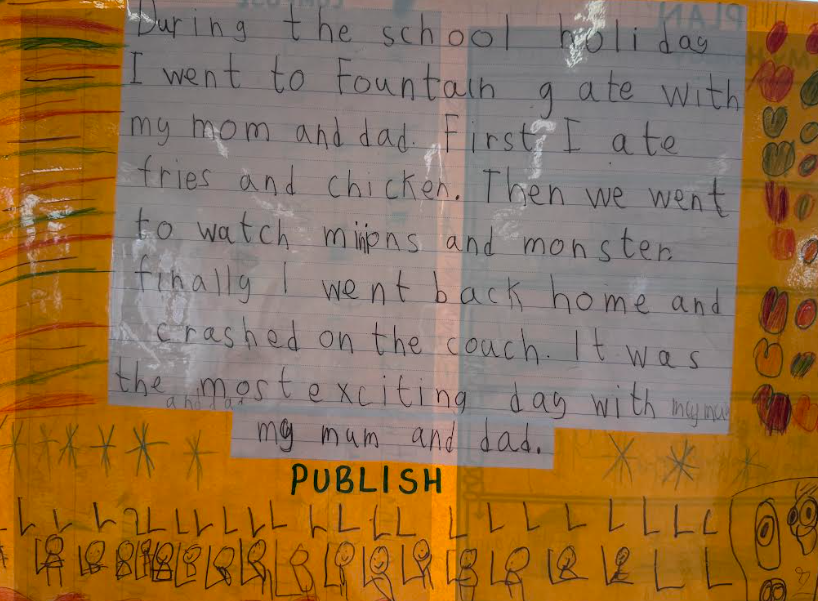 During the school holiday
I went to Fountain gate with
my mom and dad. First I ate
fries and chicken. Then we went
to watch minions and monster.
finally I went back home and
crashed on the couch. It was
the most exciting day with
my mum and dad.
PUBLISH